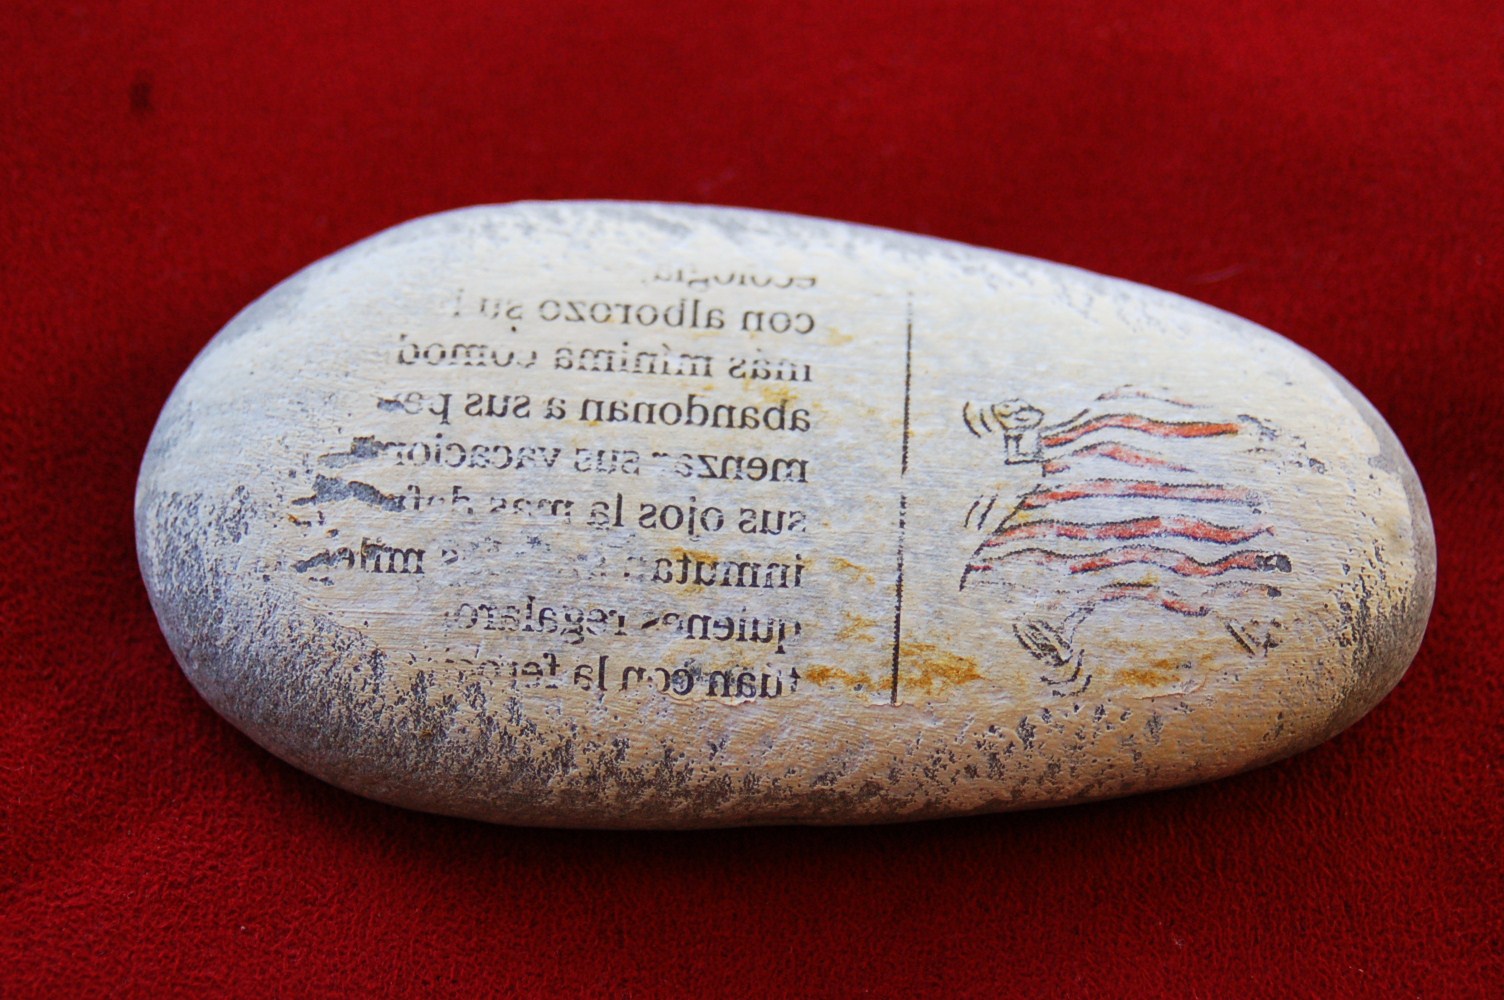 ecología,
con alborozo su
más mínima comod
abandonan a sus pe
menzar sus vacacion
sus ojos la más
inmuta
quienes regalaro
túan con la